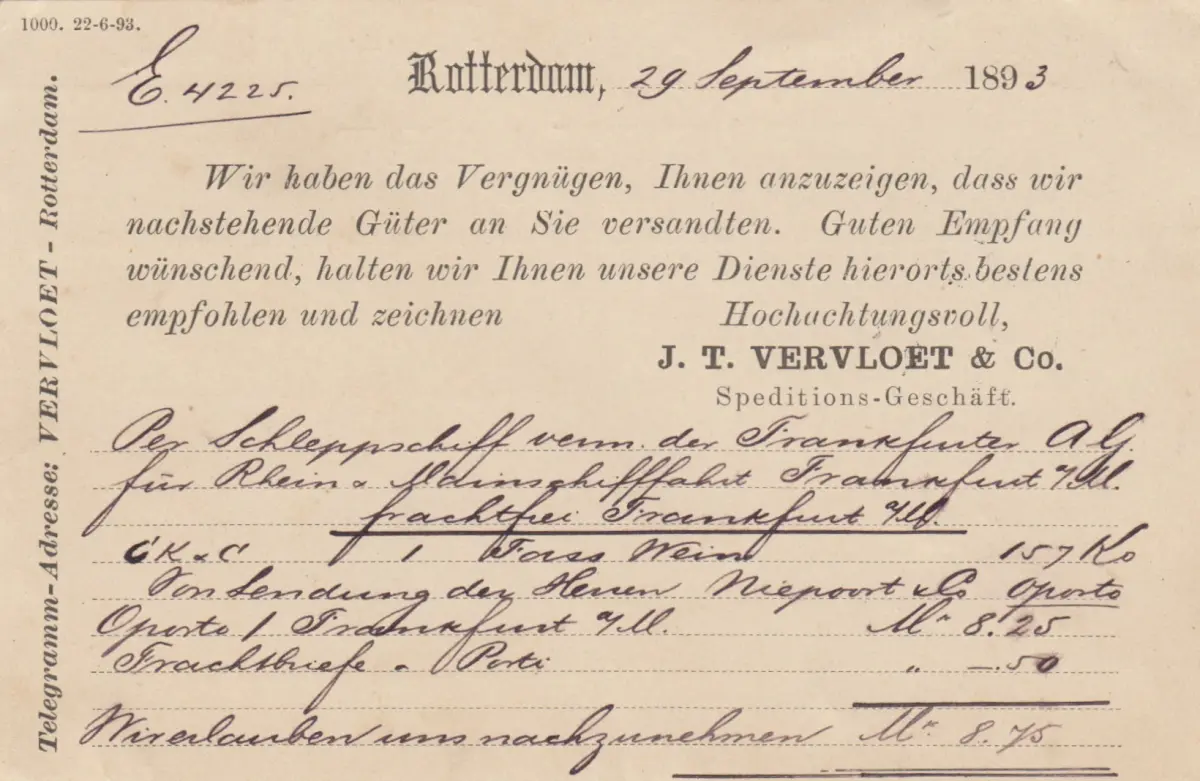 1000. 22-6-93.
E. 4225.
Rotterdam, 29 September 1893
Telegramm-Adresse: VERVLOET - Rotterdam.
Wir haben das Vergnügen, Ihnen anzuzeigen, dass wir
nachstehende Güter an Sie versandten. Guten Empfang
wünschend, halten wir Ihnen unsere Dienste hierorts bestens
empfohlen und zeichnen Hochachtungsvoll,
J. T. VERVLOET & Co.
Speditions-Geschäft.
Per Schleppschiff verm. der Frankfurter A G.
für Rhein & Mainschifffahrt Frankfurt a/M.
frachtfrei Frankfurt a/M.
C K & C 1 Fass Wein 157 Ko
Von Sendung der Herren Niepoort & Co Oporto
Oporto / Frankfurt a/M. Mk 8.25
Frachtbriefe & Porti " —.50
Wir erlauben uns nachzunehmen Mk 8.75